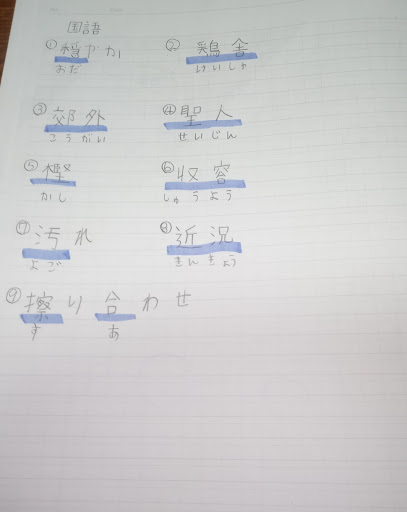 国語
① 穏やか ② 鶏舎
おだ けいしゃ
③ 郊外 ④ 聖人
こうがい せいじん
⑤ 樫 ⑥ 収容
かし しゅうよう
⑦ 汚れ ⑧ 近況
よご きんきょう
⑨ 擦り合わせ
す あ